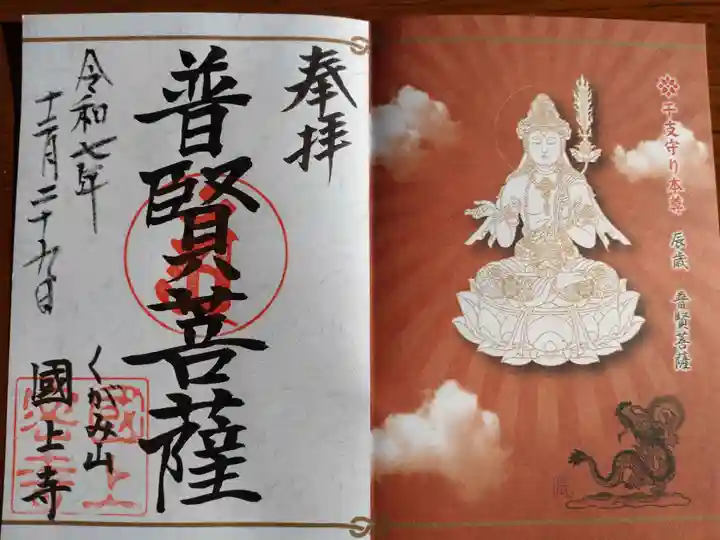 干支守り本尊 辰歳 普賢菩薩
奉拝
普賢菩薩
くがみ山
國上寺
令和七年
十二月二十九日